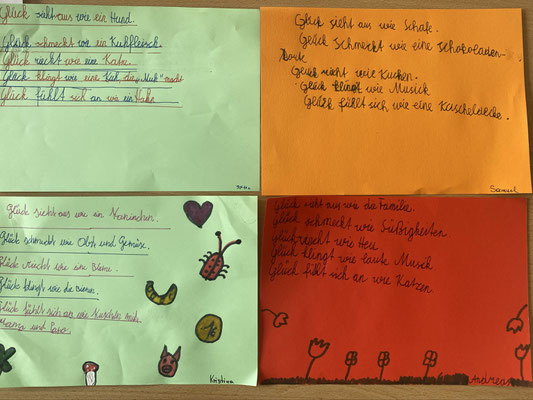 Glück säht aus wie ein Hund.
Glück schmeckt wie ein Kuhfleisch.
Glück riecht wie eine Katze.
Glück klingt wie eine Kuh die „Muh" macht
Glück fühlt sich an wie ein Hahn
Glück sieht aus wie Schafe.
Glück schmeckt wie eine schokoladen-
torte
Glück richt wie Kuchen.
Glück klingt wie Musick
Glück fühlt sich wie eine Kascheldecke.
Samuel
Glück sieht aus wie ein Kaninchen.
Glück schmeckt wie Obst und Gemüse.
Glück riecht wie eine Blume.
Glück klingt wie die Biene.
Glück fühlt sich an wie Kuscheln mit
Mama und Papa.
Kristina
Glück säht aus wie die Familie.
Glück schmeckt wie Süßigkeiten
Glück riecht wie Heu
Glück klingt wie laute Musik
Glück fühlt sich an wie Katzen.
Andreas